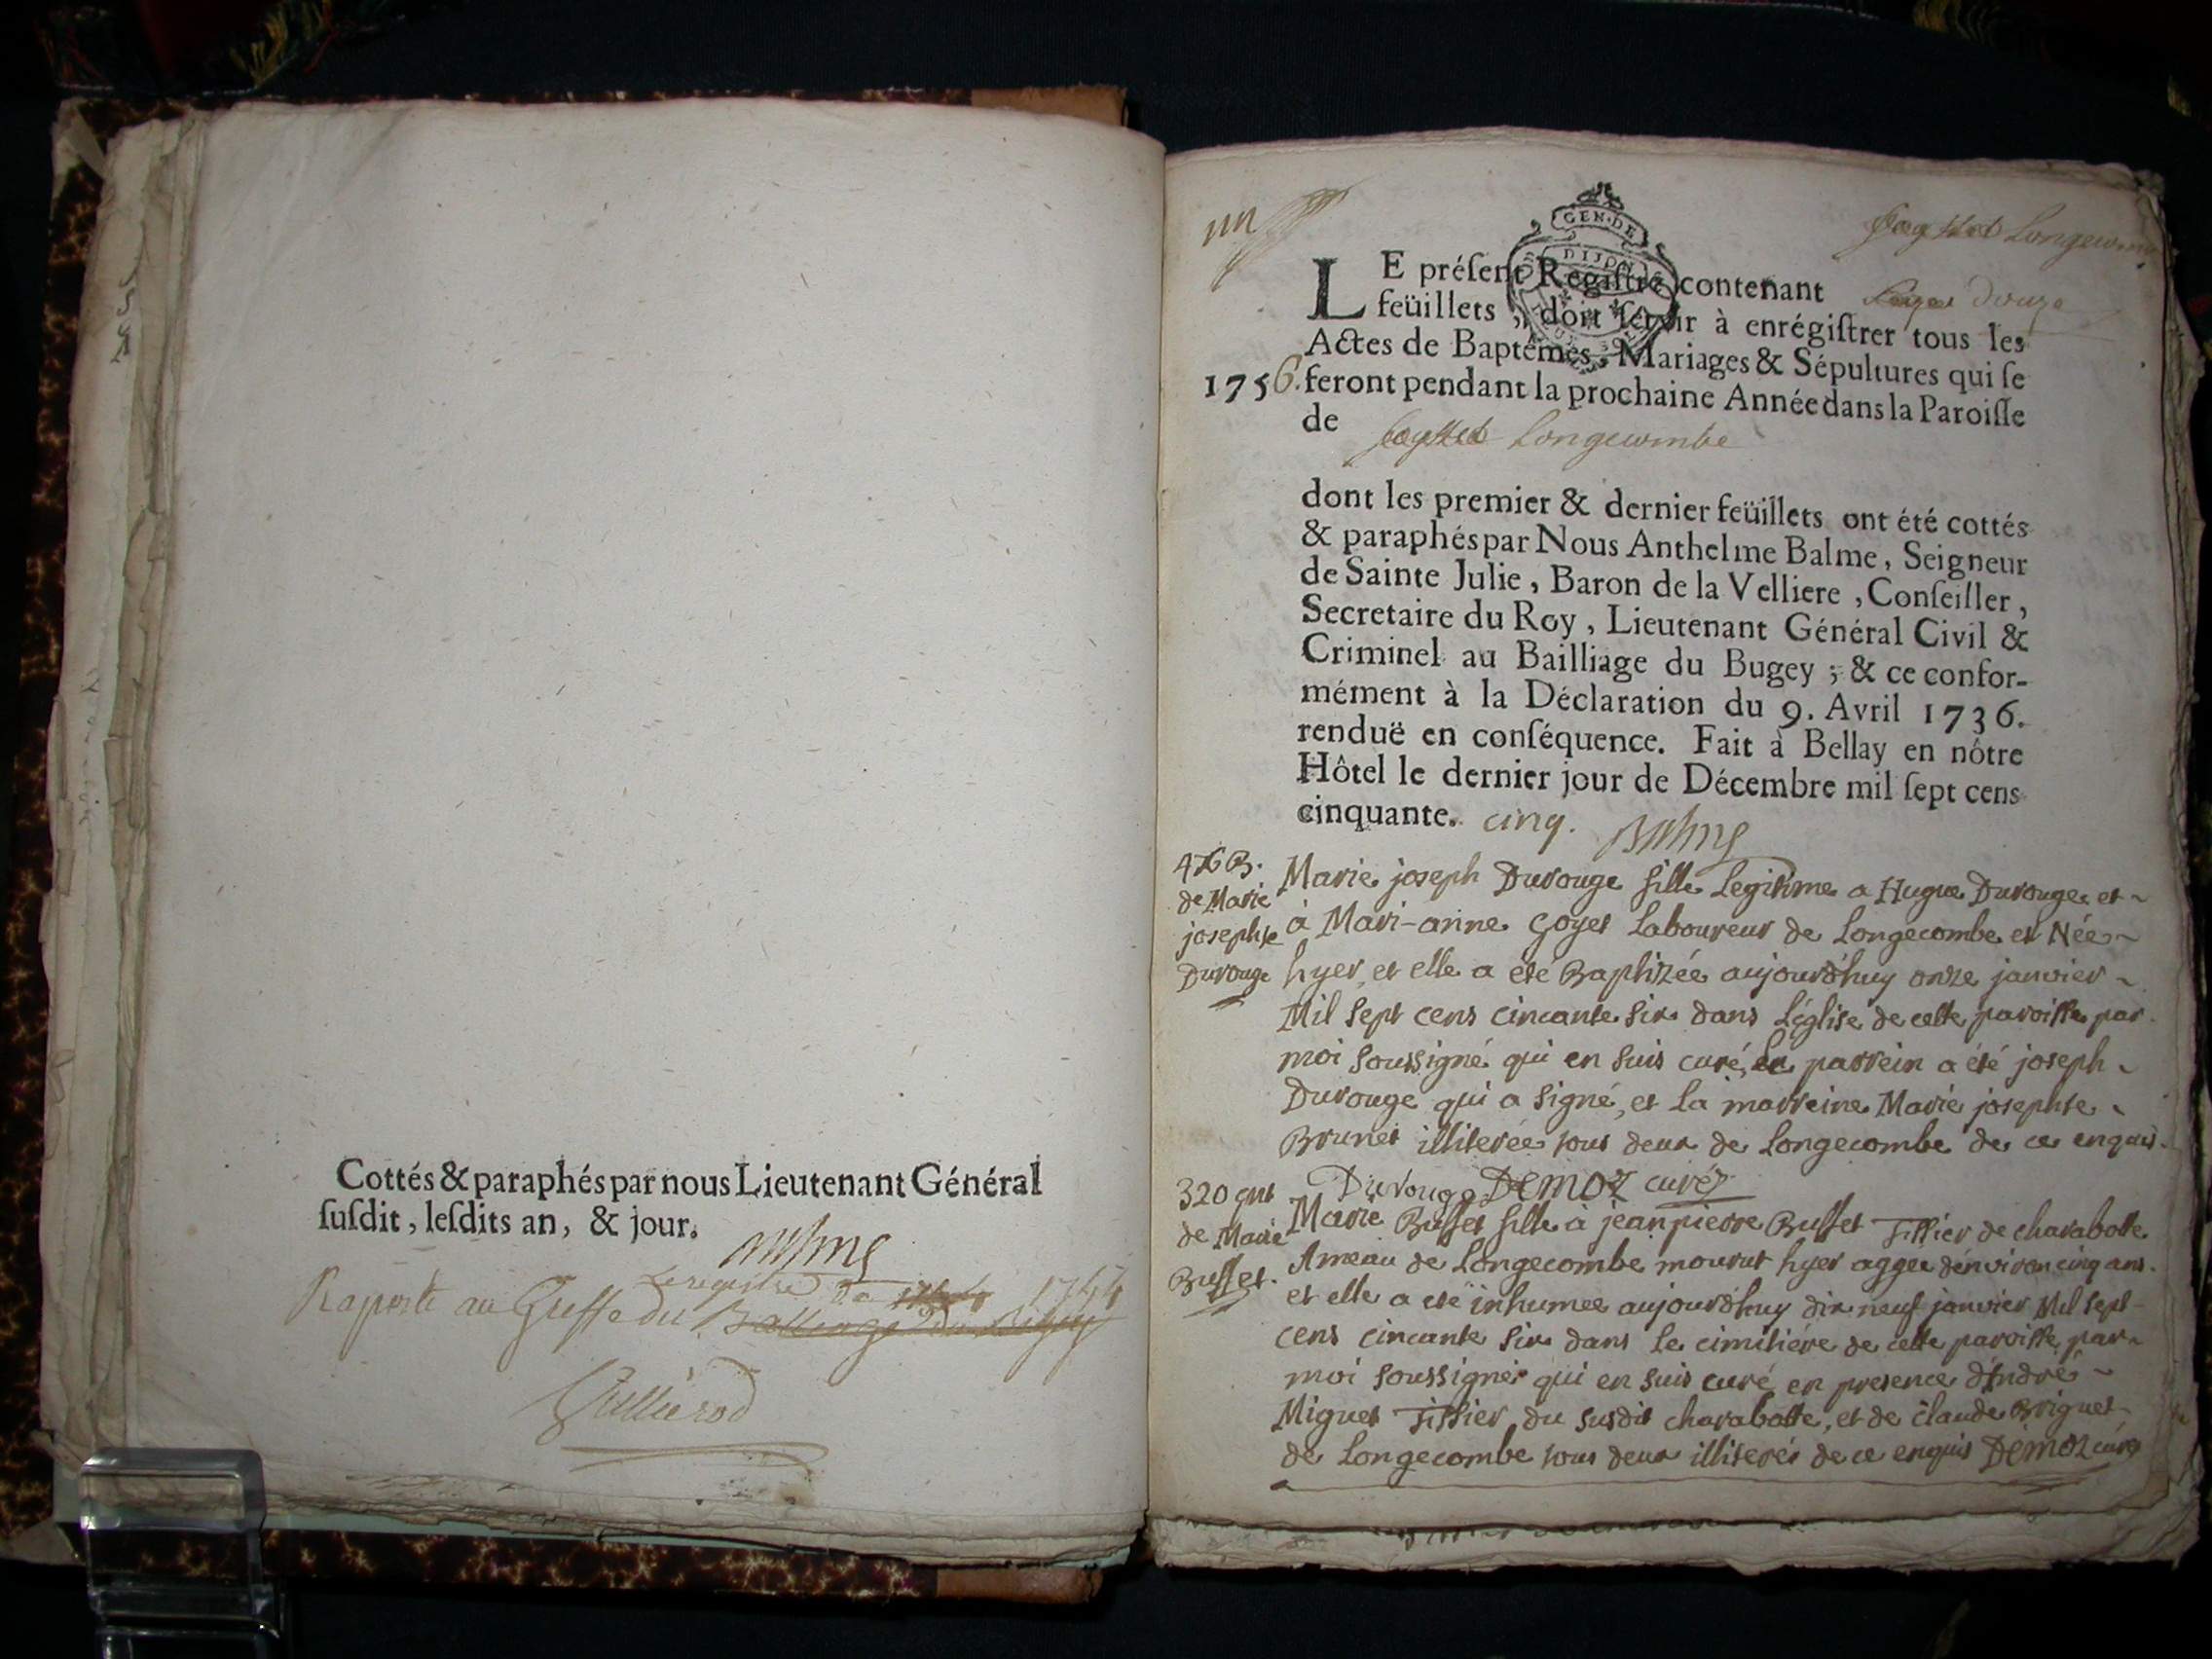 Cottés & paraphés par nous Lieutenant Général
ſuſdit, leſdits an, & jour.
Balme
Le registre De 1754
Raporté au Greffe du Balliage du Bugey
un
Longecombe
GEN. DE
DIJON
LE préſent Regiſtre contenant Pages Douze
feüillets, doit ſervir à enrégiſtrer tous les
Actes de Baptêmes, Mariages & Sépultures qui ſe
1756. feront pendant la prochaine Année dans la Paroiſſe
de Longecombe
dont les premier & dernier feüillets ont été cottés
& paraphés par Nous Anthelme Balme, Seigneur
de Sainte Julie, Baron de la Velliere, Conſeiller,
Secretaire du Roy, Lieutenant Général Civil &
Criminel au Bailliage du Bugey ; & ce confor-
mément à la Déclaration du 9. Avril 1736.
renduë en conſéquence. Fait à Bellay en nôtre
Hôtel le dernier jour de Décembre mil ſept cens
cinquante. cinq. Balme
de Marie
josephte
Durouge
Marie joseph Durouge fille Legitime a Hugue Durouge et
à Mari-anne Goyet Laboureur de Longecombe et Née
hyer, et elle a été Baptizée aujourd'huy onze janvier
Mil sept cens cincante six dans L'église de cette paroisse par
moi soussigné qui en suis curé, le parrein a été joseph
Durouge qui a signé, et la marreine Marie josephte
Brunet illiterée tous deux de Longecombe de ce enquis
Durouge DEMOZ curéz
320 ent
de Marie
Buffet.
Marie Buffet fille à jean pierre Buffet Tissier de charabotte
Ameau de Longecombe mourut hyer aggée d'environ cinq ans.
et elle a été inhumée aujourd'huy dix neuf janvier Mil sept
cens cincante six dans le cimitiére de cette paroisse par
moi soussigné qui en suis curé en presence d'André
Miguet Tissier du susdit charabotte, et de claude Briguet
de Longecombe tous deux illiterés de ce enquis DEMOZ curé